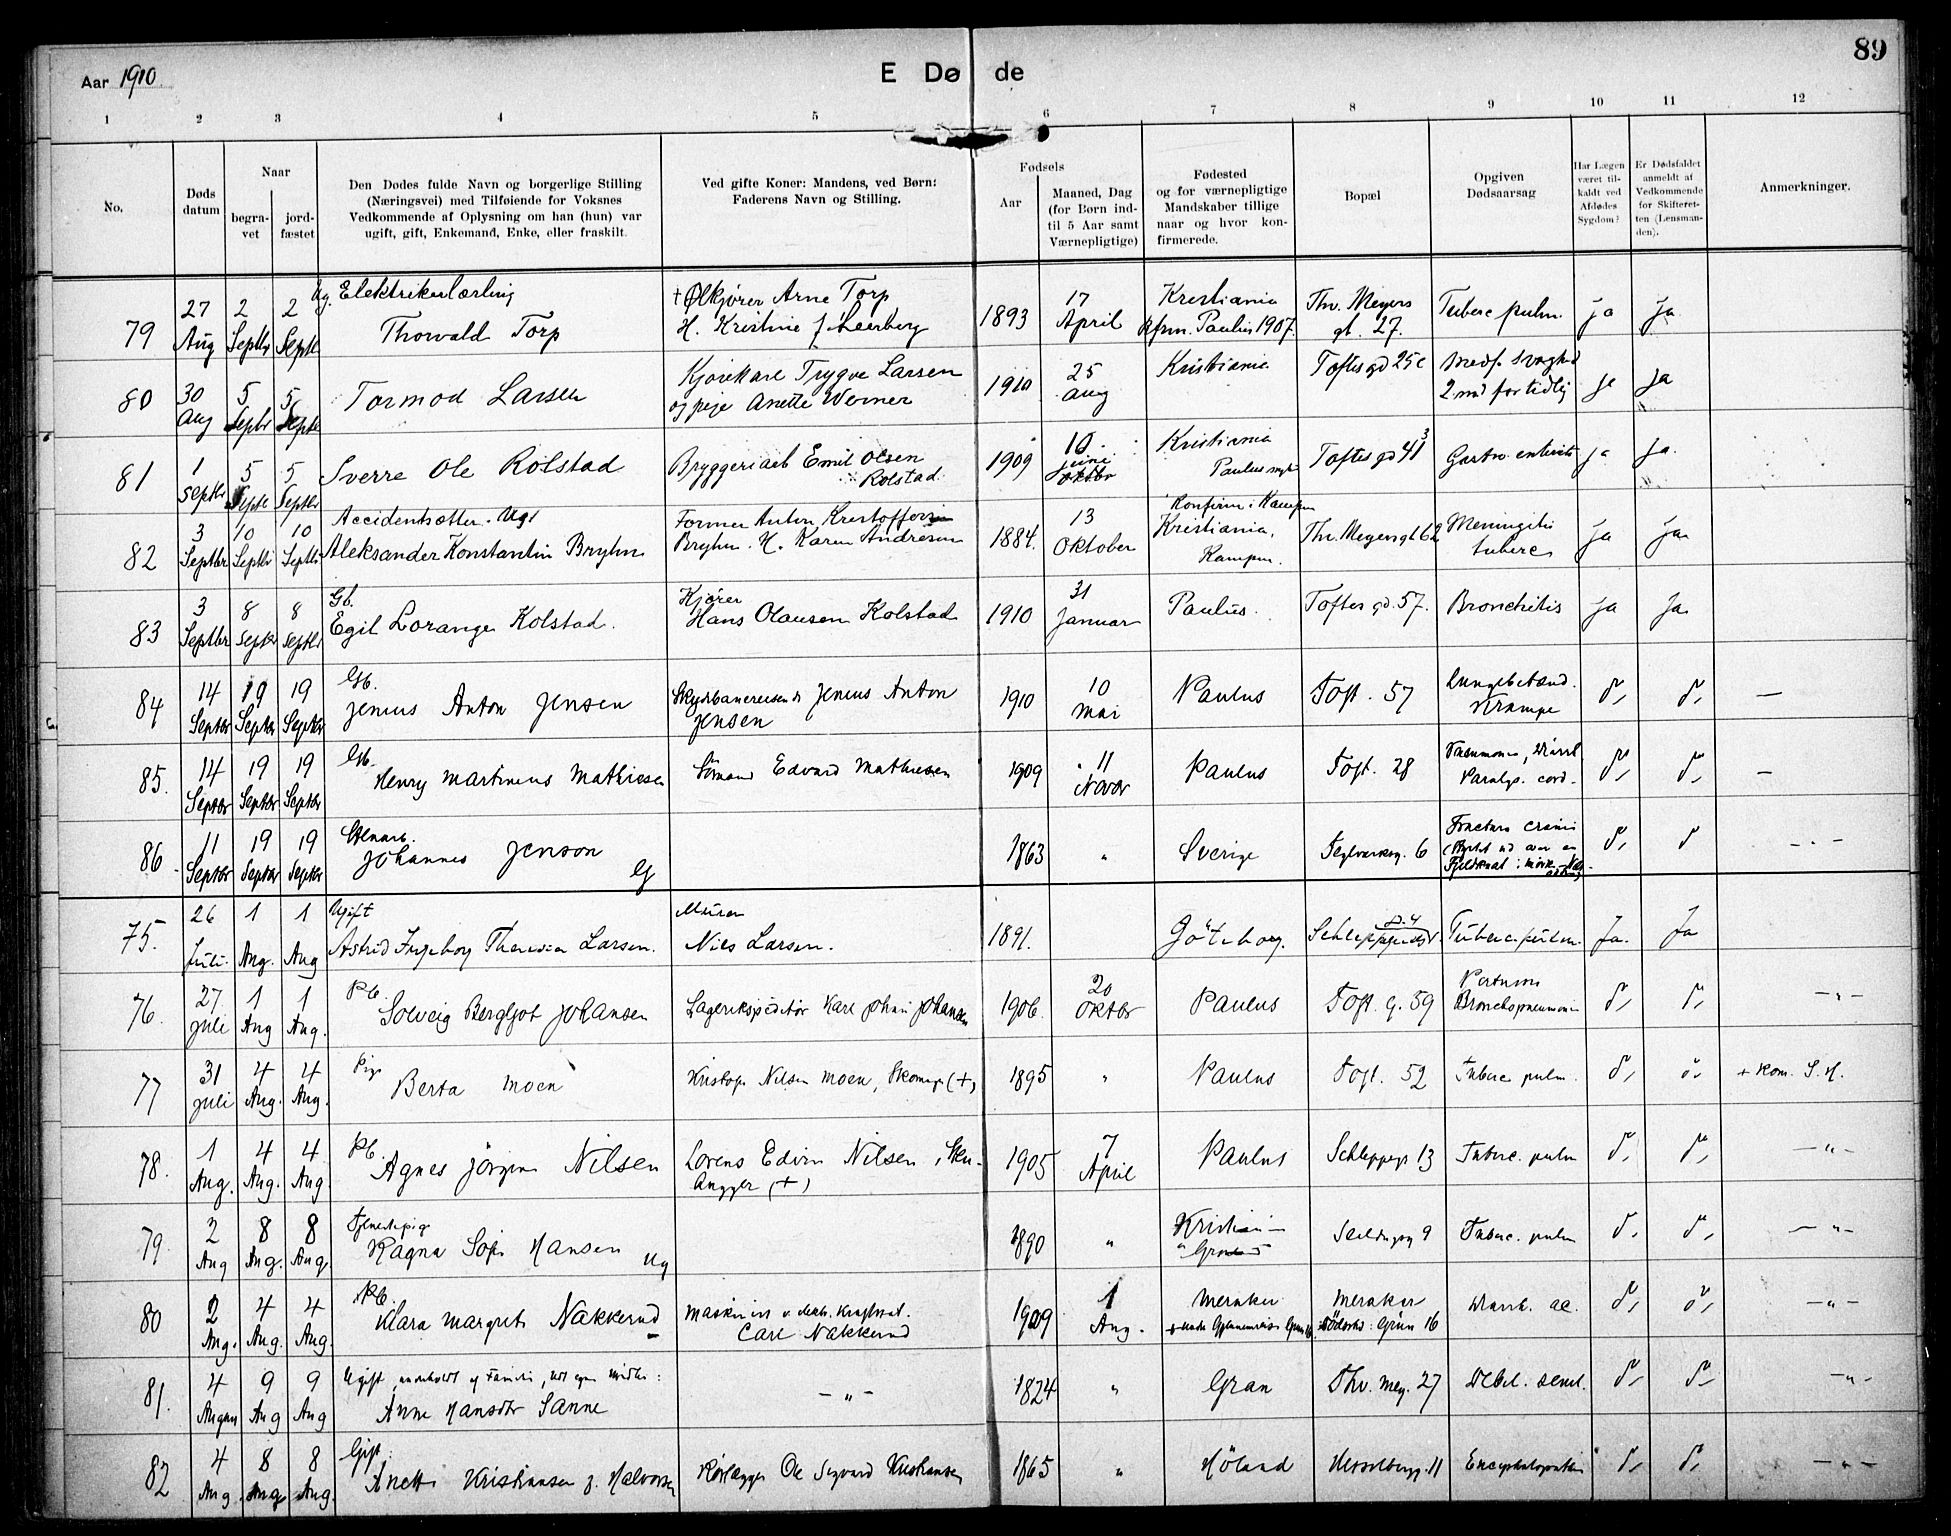 Aar 1910. E Døde 89
1 2 3 4 5 6 7 8 9 10 11 12
No.
Døds datum
Naar
begravet
jordfæstet
Den Dødes fulde Navn og borgerlige Stilling
(Næringsvei) med Tilføiende for Voksnes
Vedkommende af Oplysning om han (hun) var
ugift, gift, Enkemand, Enke, eller fraskilt.
Ved gifte Koner: Mandens, ved Børn:
Faderens Navn og Stilling.
Fødsels
Aar
Maaned, Dag
(for Børn ind-
til 5 Aar samt
Værnepligtige)
Fødested
og for værnepligtige
Mandskaber tillige
naar og hvor kon-
firmerede.
Bopæl
Opgiven
Dødsaarsag
Har Lægen
været til-
kaldt ved
Afdødes
Sygdom?
Er Dødsfaldet
anmeldt af
Vedkommende
for Skifteret-
ten (Lensman-
den).
Anmerkninger.
Ug. Elektrikerlærling + Ølkjører Arne Torp
79 27 Aug 2 Septbr 2 Septb Thorvald Torp H. Kristine f. 1893 17 April Kristiania Kfrm. Paulus 1907. Thv. Meyers gt. 27. Tuberc pulm. ja ja
80 30 Aug 5 Septbr 5 Septb Tormod Larsen Kjørekarl Trygve Larsen og pige Anette Werner 1910 25 Aug Kristiania Toftes gd 25c Medf. Svaghed 2 md for tidlig ja ja
81 1 Septbr 5 Septb 5 Septbr Sverre Ole Rolstad Bryggeriarb Emil Olsen Rolstad 1909 10 juni oktbr Kristiania Paulus Toftes gd 41³ Gastro enterit ja ja.
Accidentsætter. Ug.
82 3 Septbr 10 Septbr 10 Septbr Aleksander Konstantin Bryhn Former Anton Kristoffersen Bryhn. H. Karen Andresen 1884. 13 Oktober Konfirm i Kampen Kristiania, Kampen. Th. Meyersgt 62 Meningitis tuberc ja ja.
Gb.
83 3 Septbr 8 Septbr 8 Septbr Egil Lorange Kolstad. Kjører Hans Olausen Kolstad 1910 31 Januar Paulus. Toftes gd. 57. Bronchitis ja ja.
Gb.
84 14 Septbr 19 Septbr 19 Septbr Jenius Anton Jensen Jenius Anton Jensen 1910 10 Mai Paulus Toft. 57 Lungebetænd. Krampe —
Gb.
85. 14 Septbr 19 Septbr 19 Septbr Henry Martinius Mathiesen Sømand Edvard Mathiesen 1909 11 Novbr Paulus Toft. 28 Pneumonia, Paralys. cord. —
Stenarb.
86 11 Septbr 19 Septbr 19 Septbr Johannes Jenson G 1863 " Sverige Teglverksg. 6 Fractura cranii - " -
Ugift
75. 26 Juli. 1 Aug. 1 Aug Astrid Ingeborg Theresia Larsen. Murer Nils Larsen. 1891. Göteborg. Schleppegrells Tuberc. pulm. Ja. Ja
Pb.
76. 27 juli 1 Aug 1 Aug. Solveig Bergljot Johansen Lagerekspeditør Karl Johan Johansen 1906. 20 Oktbr Paulus Toft. g. 59 Pertussis Bronchopneumoni — " —
Pige
77 31 juli 4 Aug. 4 Aug. Berta Moen Kristofer Nilsen Moen, Skomag (+) 1895 " Paulus Toft. 52 Tuberc pulm. + Kom. S. H.
Pb.
78. 1 Aug. 4 Aug. 4 Aug Agnes Jörgine Nilsen Lorens Edvin Nilsen, (+) 1905 7 April Paulus Schleppegr 13 Tuberc. pulm — " —
Tjenestepige
79. 2 Aug 8 Aug. 8 Aug. Ragna Sofie Hansen Ug 1890 " Kristiania Tuberc. pulm — " —
Pb.
80 2 Aug. 4 Aug. 4 Aug. Klara Margrete Nækkerud Maskinist Carl Nækkerud 1909 1 Aug. Meraker Meraker — " —
81. 4 August 9 Aug 9 Aug Ugift, underholdt af Familie, Anne Hansdtr Sanne — " — 1824 " Gran Thv. Mey. 27 Debil. senil. — " —
Gift.
82 4 Aug. 8 Aug 8 Aug. Anette Kristiansen f. Halvorsen Rørlægger Ole Sigvard Kristiansen 1865 " Höland Hesselbergg. 11 — " —